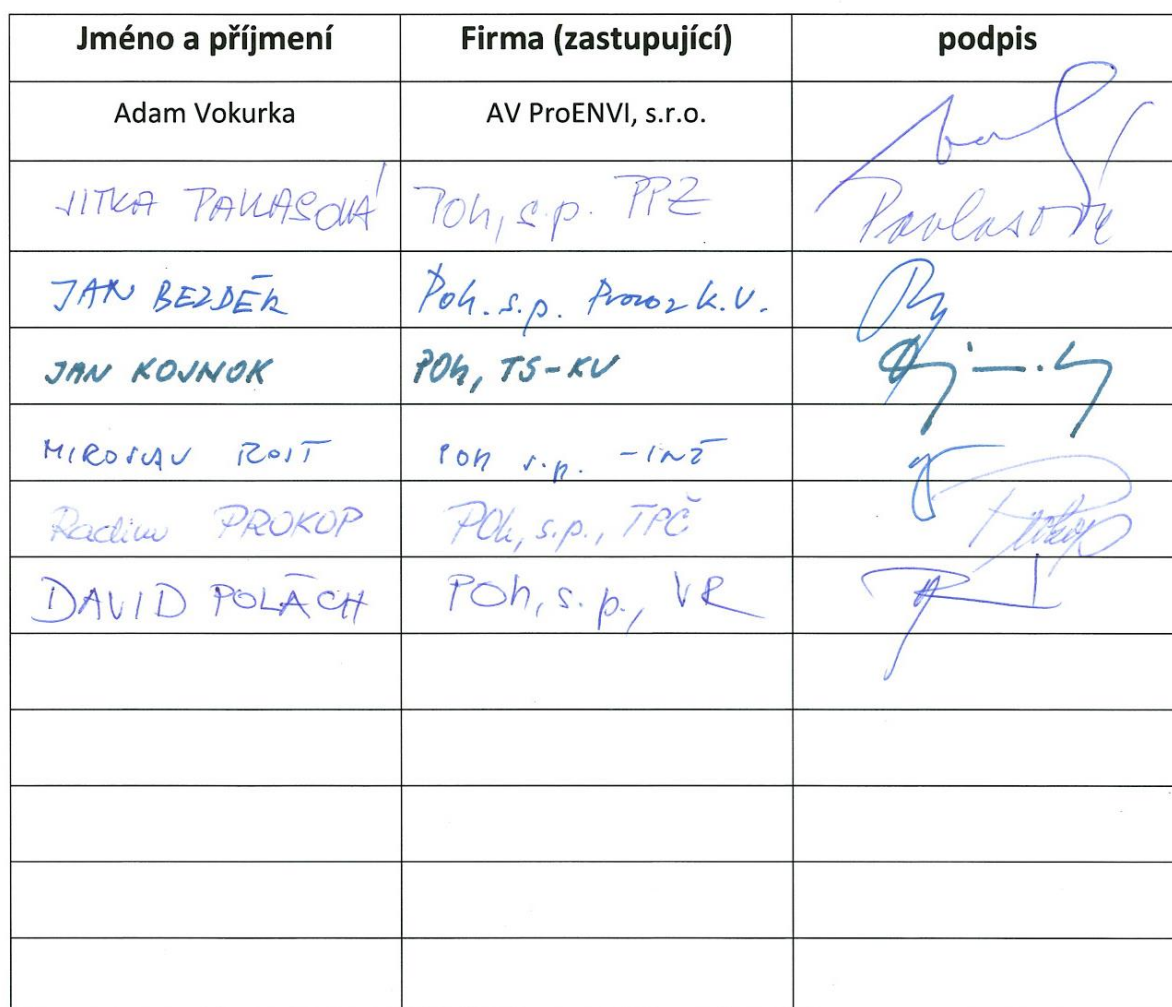 Jméno a příjmení Firma (zastupující) podpis
Adam Vokurka AV ProENVI, s.r.o.
JITKA PAVLASOVÁ POh, s.p. PPZ Pavlasová
JAN BEZDĚK POh. s.p. Provoz K.V.
JAN KOJNOK POh, TS-KV
MIROSLAV POh s.p. - INŽ
Radim PROKOP POh, s.p., TPČ Prokop
DAVID POLÁCH POh, s.p., VR